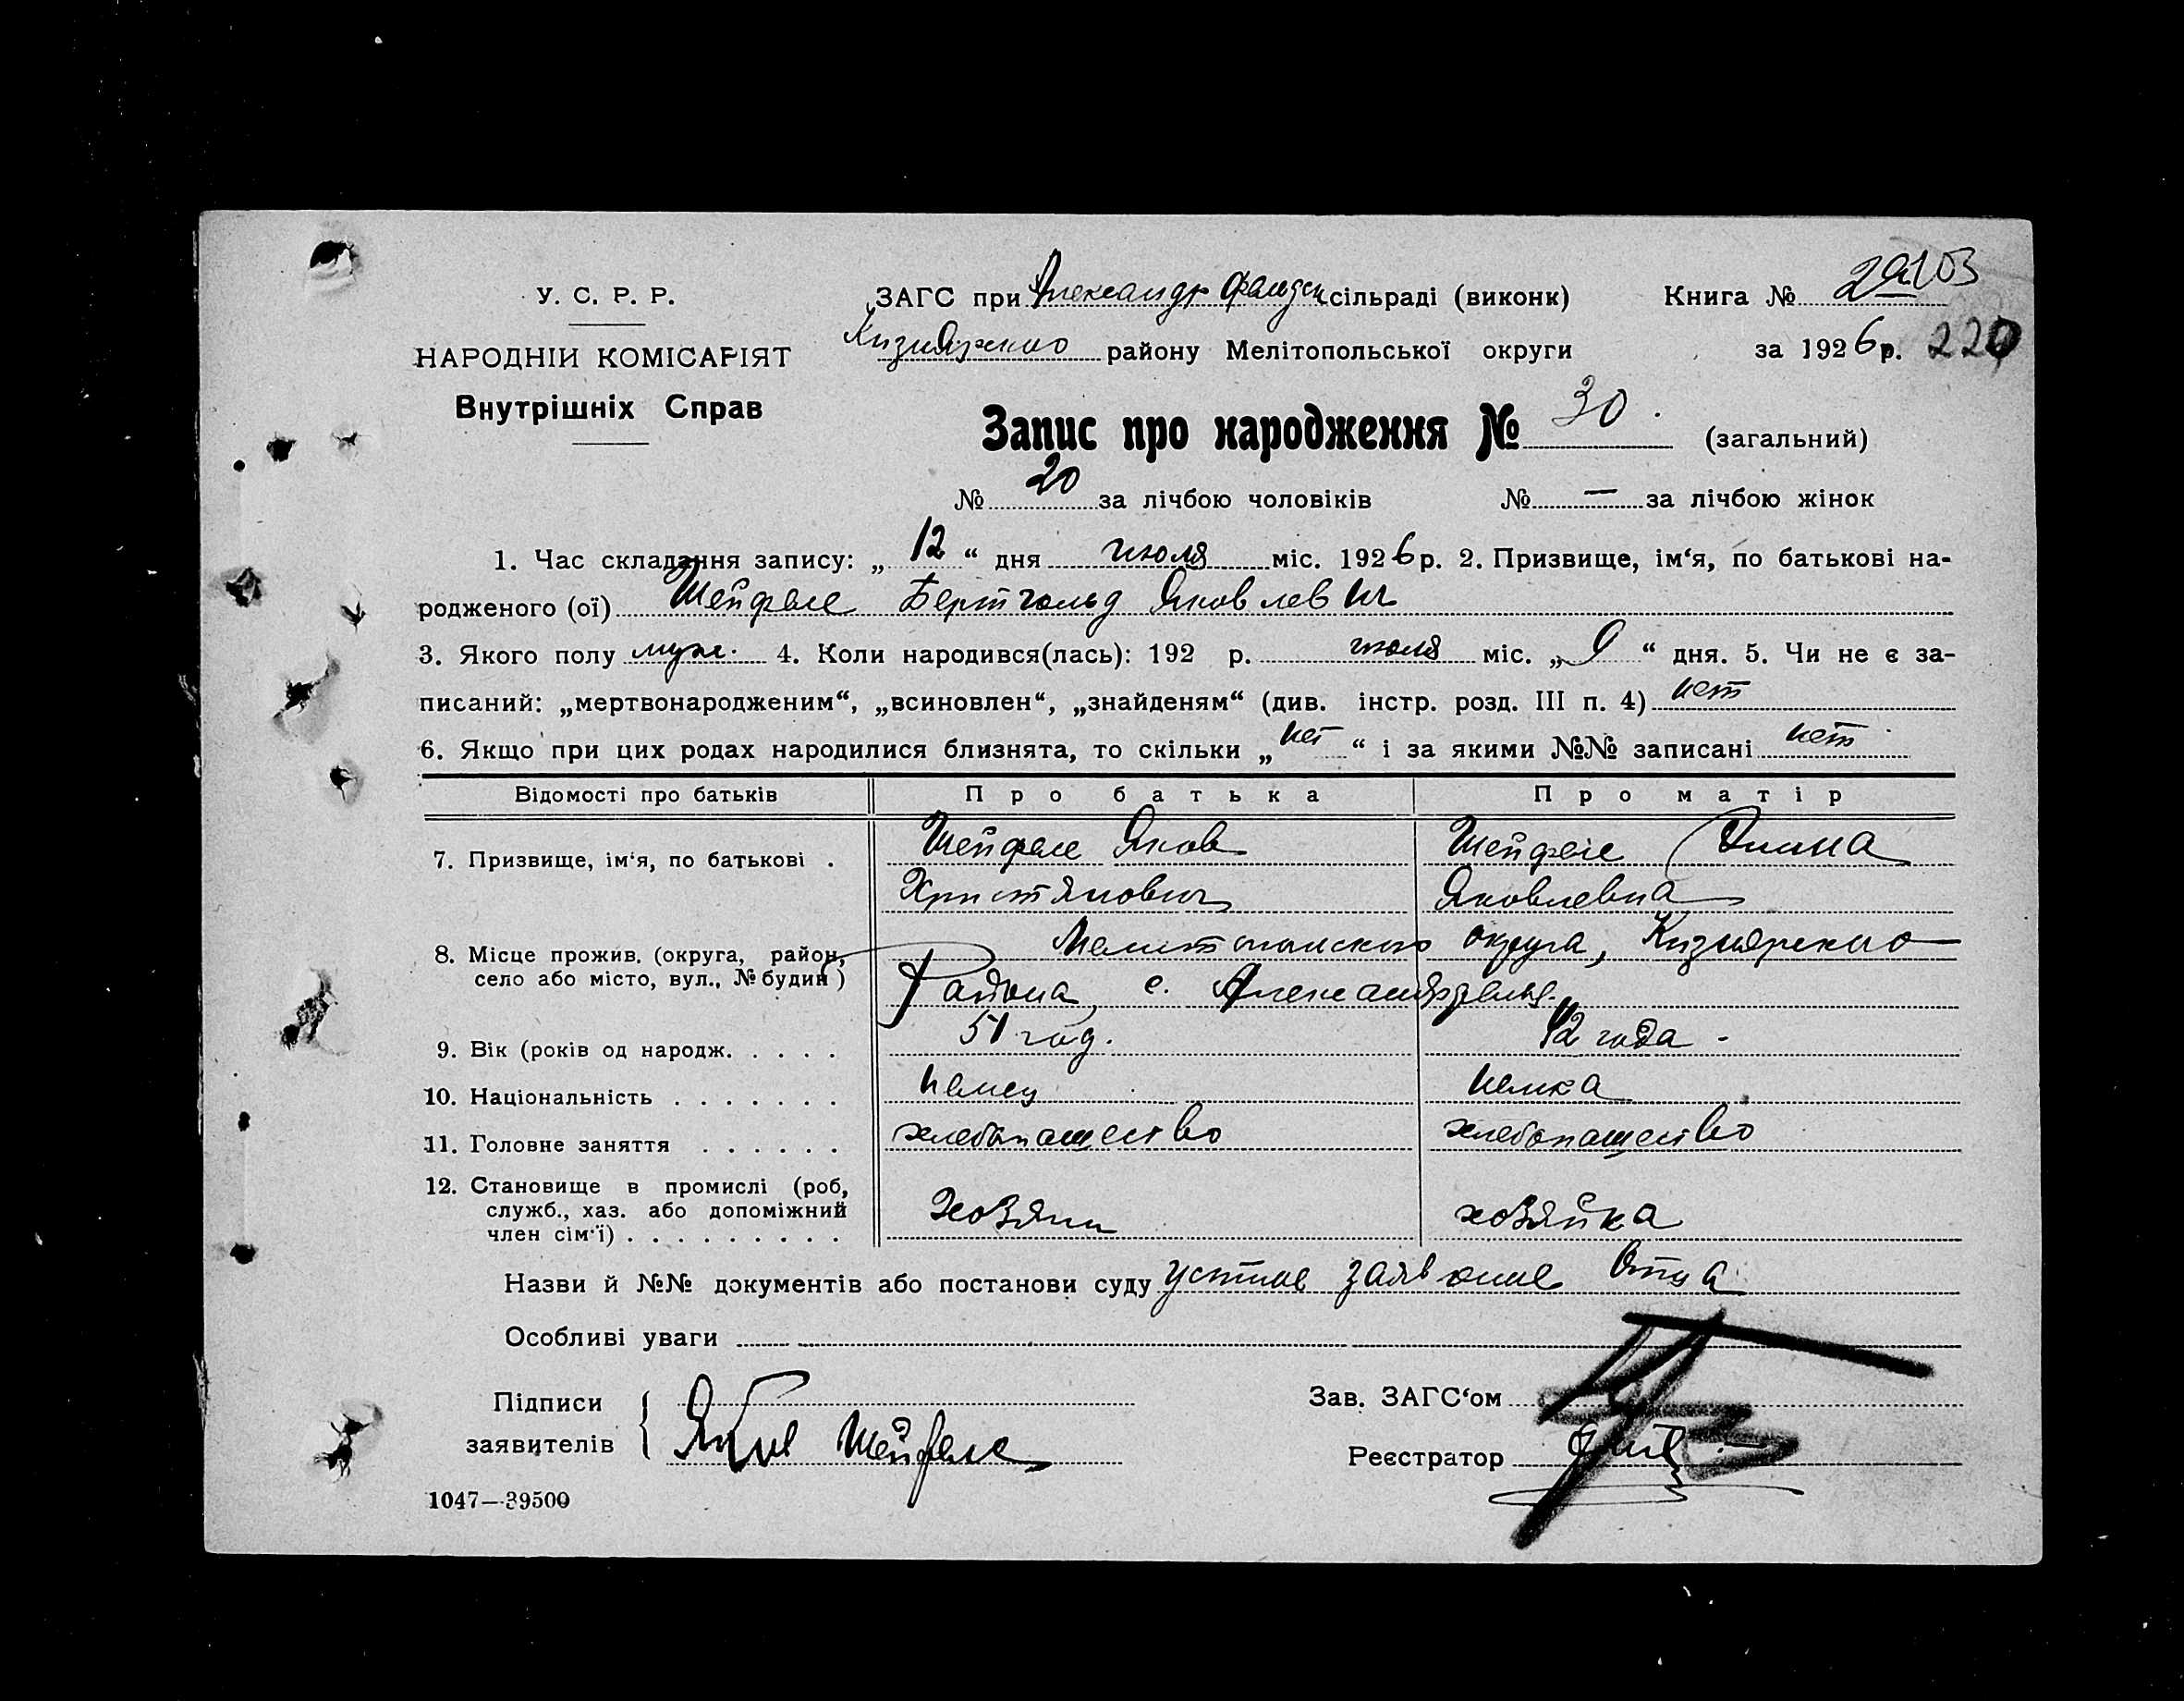 У. С. Р. Р.
НАРОДНІЙ КОМІСАРІЯТ
Внутрішніх Справ
ЗАГС при Александрфельдск сільраді (виконк) Книга №
Кизиярского району Мелітопольської округи за 1926 р. 220
Запис про народження № 30. (загальний)
№ 20 за лічбою чоловіків № — за лічбою жінок
1. Час складання запису: „ 12 “ дня июля міс. 1926 р. 2. Призвище, ім‘я, по батькові на-
родженого (ої) Шейфеле Бертгольд Яковлевич
3. Якого полу муж. 4. Коли народився(лась): 192 р. июля міс. „ 9 “ дня. 5. Чи не є за-
писаний: „мертвонародженим“, „всиновлен“, „знайденям“ (див. інстр. розд. III п. 4) нет
6. Якщо при цих родах народилися близнята, то скільки „ нет “ і за якими №№ записані нет
Відомості про батьків Про батька Про матір
7. Призвище, ім‘я, по батькові . Шейфеле Яков Шейфеле
Христянович Яковлевна
8. Місце прожив. (округа, район, Мелитопольского округа, Кизиярского
село або місто, вул., № будин ) Района, с. Александрфельд.
9. Вік (років од народж. . . . . 51 год. 42 года -
10. Національність . . . . . . . немец немка
11. Головне заняття . . . . . . хлебопашество хлебопашество
12. Становище в промислі (роб,
служб., хаз. або допоміжний Хозяин хозяйка
член сім‘ї) . . . . . . . . .
Назви й №№ документів або постанови суду устное заявление Отца
Особливі уваги
Підписи Зав. ЗАГС‘ом
заявителів Яков Шейфеле Реєстратор
1047—39500